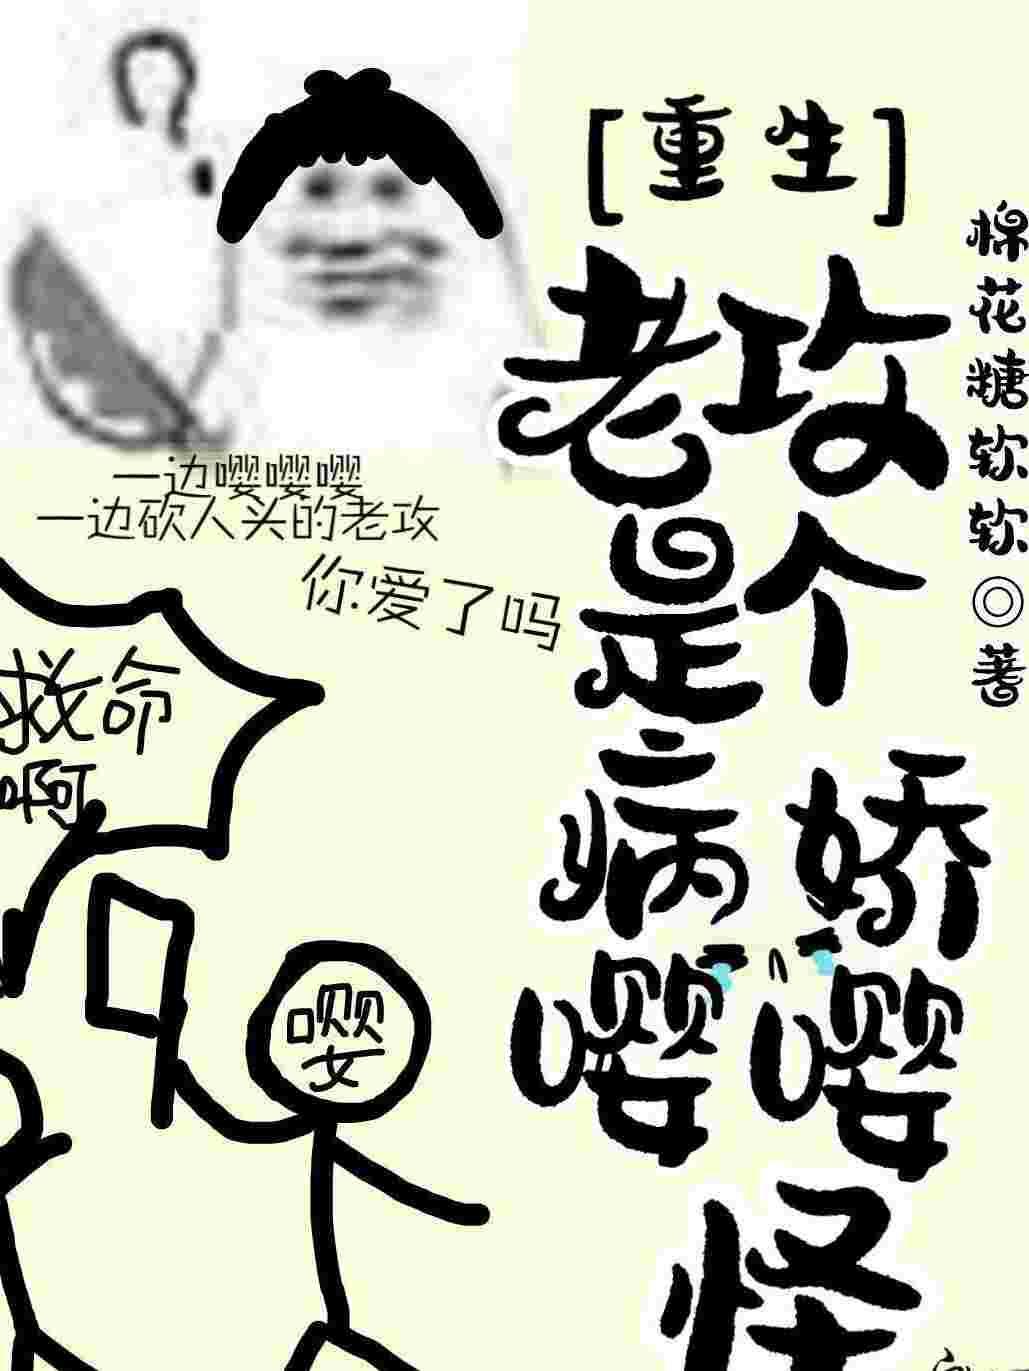 [重生]
老攻
是个
病娇
嘤嘤
怪
棉花糖软软◎著
?
一边嘤嘤嘤
一边砍人头的老攻
你爱了吗
救命
啊
嘤